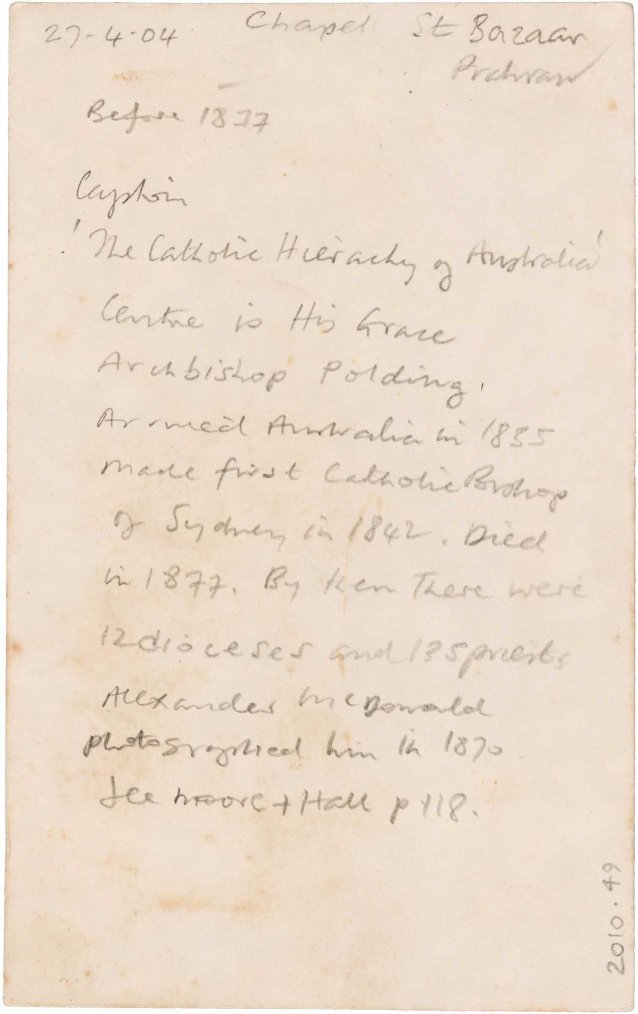 27-4-04 Chapel St Bazaar
Prahran
Before 1877
Caption
'The Catholic Hierachy of Australia'
Centre is His Grace
Archbishop Polding.
Arrived Australia in 1835
made first Catholic Bishop
of Sydney in 1842. Died
in 1877. By then There were
12 dioceses and 135 priests
Alexander McDonald
photographed him in 1870
See Moore + Hall p 118.
2010.49